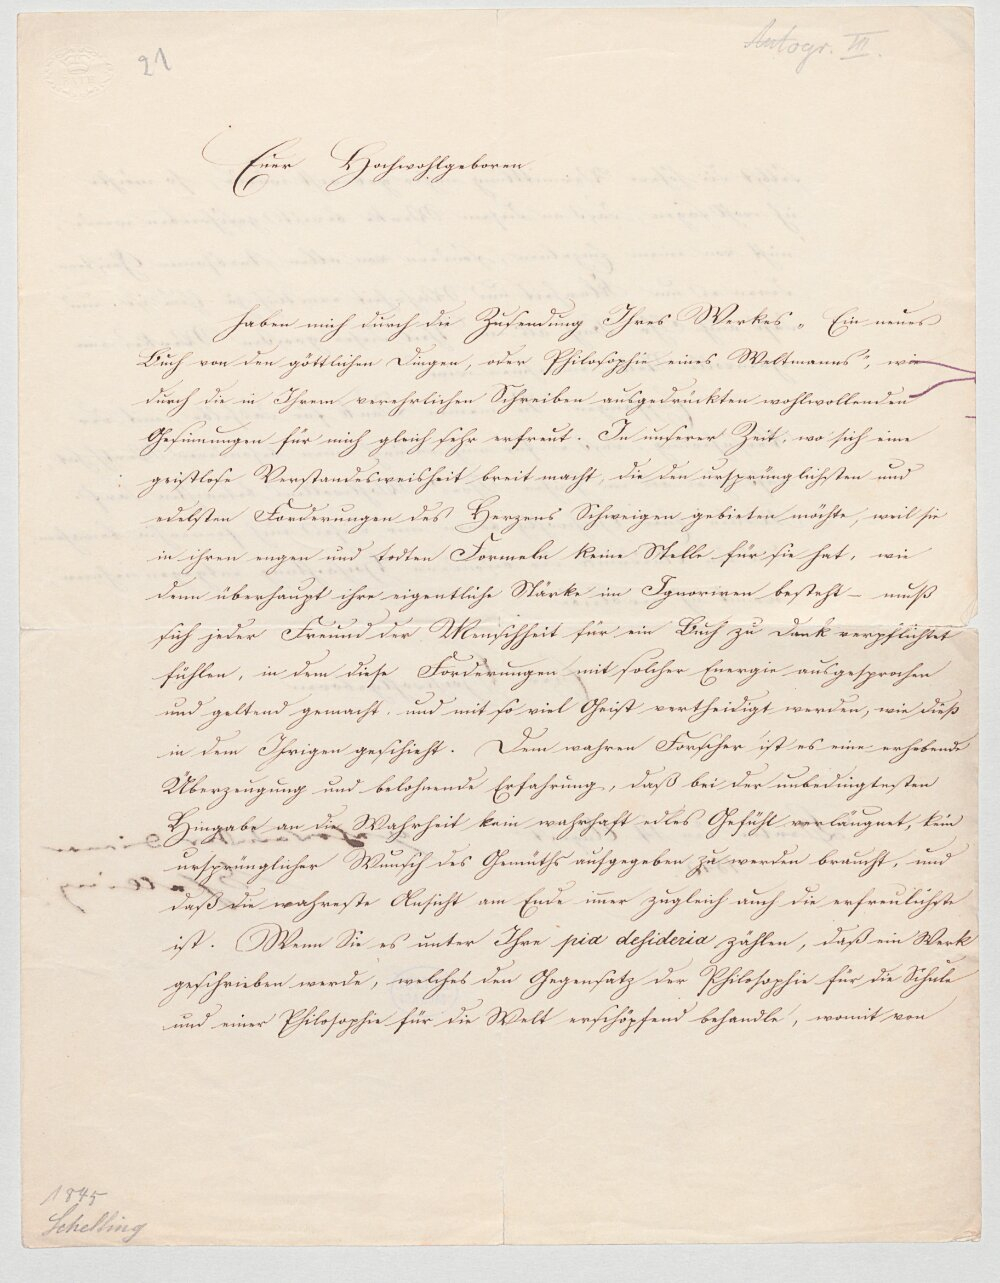 21
Autogr. III.
Euer Hochwohlgeboren
haben mich durch die Zusendung Ihres Werkes „Ein neues
Buch von den göttlichen Dingen, oder Philosophie eines Weltmanns", wie
durch die in Ihrem verehrlichen Schreiben ausgedrückten wohlwollenden
Gesinnungen für mich gleich sehr erfreut. In unserer Zeit, wo sich eine
geistlose Verstandesweisheit breit macht, die den ursprünglichsten und
edelsten Forderungen des Herzens Schweigen gebieten möchte, weil sie
in ihren engen und todten Formeln keine Stelle für sie hat, wie
denn überhaupt ihre eigentliche Stärke im Ignoriren besteht – muß
sich jeder Freund der Menschheit für ein Buch zu Dank verpflichtet
fühlen, in dem diese Forderungen mit solcher Energie ausgesprochen
und geltend gemacht, und mit so viel Geist vertheidigt werden, wie dieß
in dem Ihrigen geschieht. Dem wahren Forscher ist es eine erhebende
Überzeugung und belohnende Erfahrung, daß bei der unbedingtesten
Hingabe an die Wahrheit kein wahrhaft edles Gefühl verläugnet, kein
ursprünglicher Wunsch des Gemüths aufgegeben zu werden braucht, und
daß die wahreste Ansicht am Ende immer zugleich auch die erfreulichste
ist. Wenn Sie es unter Ihre pia desideria zählen, daß ein Werk
geschrieben werde, welches den Gegensatz der Philosophie für die Schule
und einer Philosophie für die Welt erschöpfend behandle, womit von
1845
Schelling